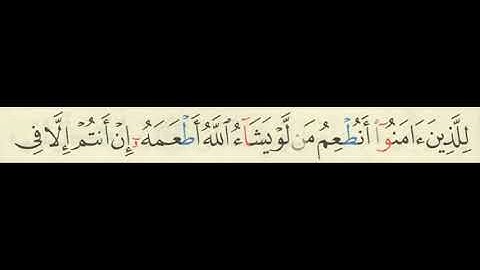 لِلَّذِينَ ءَامَنُوٓا۟ أَنُطْعِمُ مَن لَّوْ يَشَآءُ ٱللَّهُ أَطْعَمَهُۥٓ إِنْ أَنتُمْ إِلَّا فِى